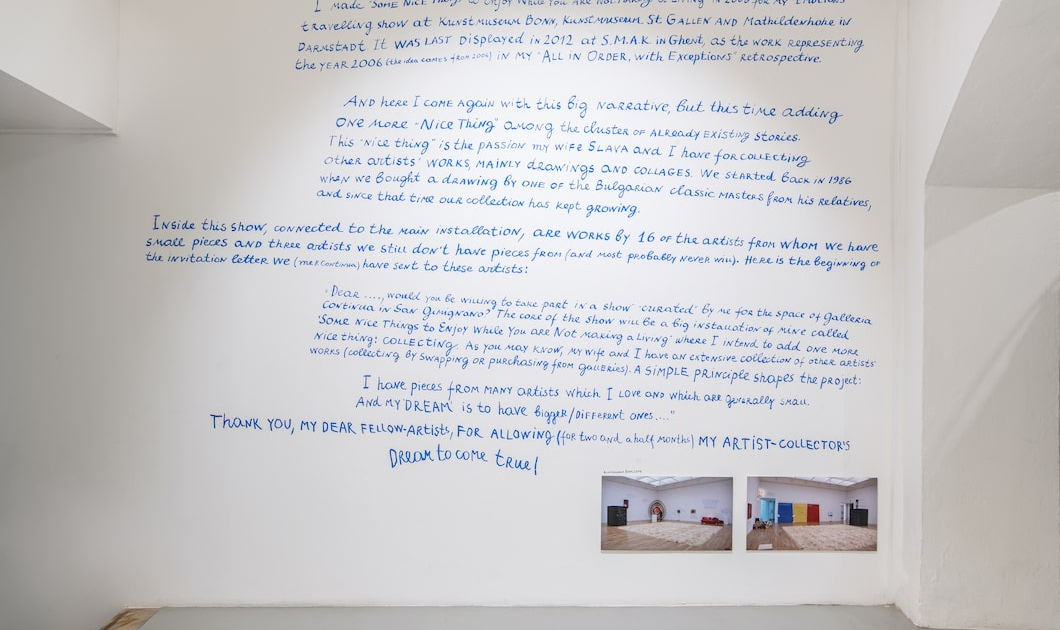 I made "Some Nice Things to Enjoy While You Are Not Making a Living" in 2005 for my
travelling show at Kunstmuseum Bonn, Kunstmuseum St. Gallen and Mathildenhöhe in
Darmstadt. It was last displayed in 2012 at S.M.A.K. in Ghent, as the work representing
the year 2006 (the idea comes from 2006) in my "All in Order, with Exceptions" retrospective.
And here I come again with this big narrative, but this time adding
one more "Nice Thing" among the cluster of already existing stories.
This "nice thing" is the passion my wife Slava and I have for collecting
other artists' works, mainly drawings and collages. We started back in 1986
when we bought a drawing by one of the Bulgarian classic masters from his relatives,
and since that time our collection has kept growing.
Inside this show, connected to the main installation, are works by 16 of the artists from whom we have
small pieces and three artists we still don't have pieces from (and most probably never will). Here is the beginning of
the invitation letter we (me & Continua) have sent to these artists:
"Dear ...., would you be willing to take part in a show "curated" by me for the space of Galleria
Continua in San Gimignano? The core of the show will be a big installation of mine called
'Some Nice Things to Enjoy While You are Not Making a Living' where I intend to add one more
nice thing: collecting. As you may know, my wife and I have an extensive collection of other artists'
works (collecting by swapping or purchasing from galleries). A simple principle shapes the project:
I have pieces from many artists which I love and which are generally small.
And my DREAM is to have bigger/different ones...."
Thank you, my dear fellow-artists, for allowing (for two and a half months) my artist-collector's
Dream to come true!